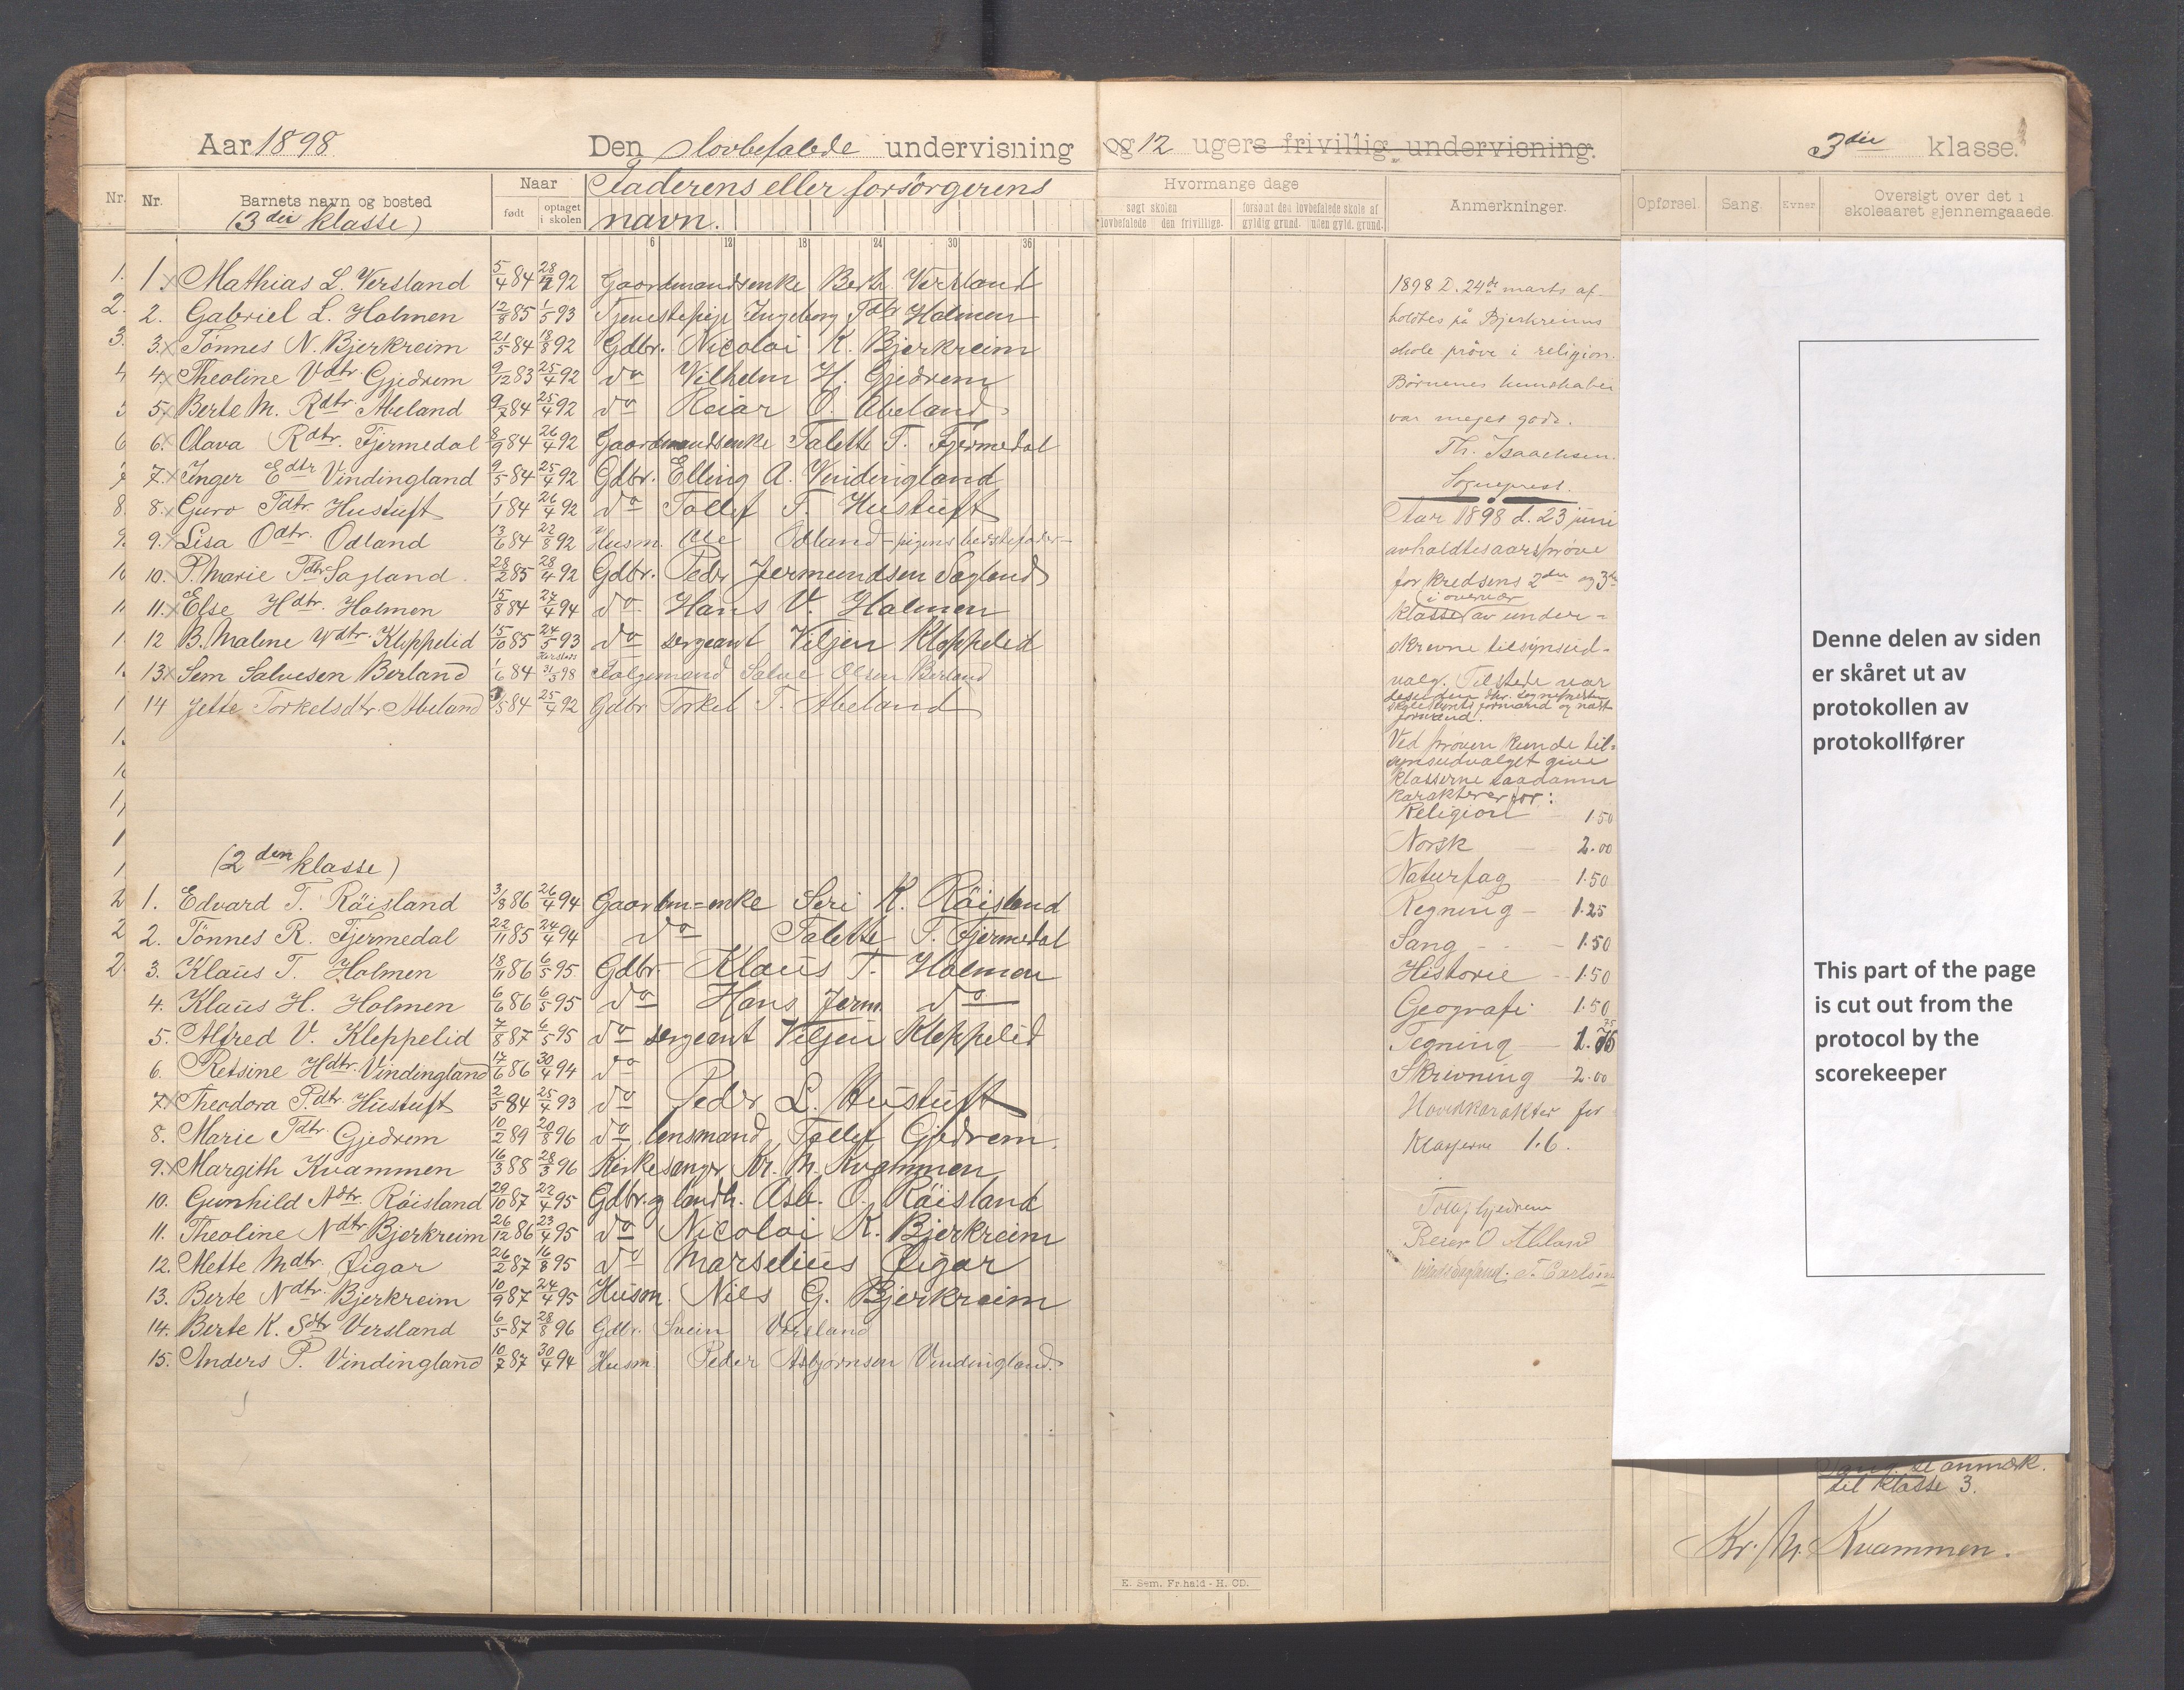 Aar 1898 Den lovbefalede undervisning og 12 ugers frivillig undervisning. 3die klasse.
Nr. Nr. Barnets navn og bosted Naar født optaget i skolen Faderens eller forsørgerens navn.
(3die klasse)
Hvormange dage
søgt skolen forsømt den lovbefalede skole af
lovbefalede den frivillige. gyldig grund. uden gyld. grund.
Anmerkninger.
Opførsel. Sang. Evner Oversigt over det i skoleaaret gjennemgaaede.
6 12 18 24 30 36
1. x Mathias L. Versland 5/4 84 28/4 92 Gaardmandsenke Berte Versland
2. Gabriel L. Holmen 12/8 85 1/5 93 Tjenestepige Ingeborg Tdtr Holmen
3. x Tönnes N. Bjerkreim 21/5 84 18/8 92 Gdbr. Nicolai K. Bjerkreim
4. x Theoline Vdtr. Gjedrem 9/12 83 25/4 92 do Vilhelm H. Gjedrem
5. x Berte M. Rdtr. Abeland 9/7 84 25/4 92 do Reiar O. Abeland
6. x Olava Rdtr. Fjermedal 8/9 84 26/4 92 Gaardmandsenke Talette T. Fjermedal
7. x Inger Edtr Vindingland 9/5 84 25/4 92 Gdbr. Elling A. Vindingland
8. x Guro Tdtr. Hustuft 1/1 84 26/4 92 do Tollef T. Hustuft
9. x Lisa Odtr. Odland 13/6 84 22/8 92 Husm. Ole Odland - pigens bedstefader -
10. P. Marie Pdtr. Sagland. 28/2 85 28/4 92 Gdbr. Peder Jermundsen Sagland
11. x Else Hdtr. Holmen 15/8 84 27/4 94 do Hans V. Holmen
12 B. Malene Wdtr. Kleppelid 15/10 85 24/5 93 do sergeant Viljen Kleppelid
13 x Sem Salvesen Berland 1/6 84 31/5 98 Folgemand Salve Olsen Berland
14 Jette Torkelsdtr. Abeland 3/5 84 25/4 92 Gdbr Torkel T. Abeland
(2den klasse)
1. Edvard T. Röisland 3/8 86 26/4 94 Gaardm=enke Seri K. Röisland
2. Tönnes R. Fjermedal 22/11 85 24/4 94 do Talette T. Fjermedal
3. Klaus T. Holmen 18/11 86 6/5 95 Gdbr. Klaus T. Holmen
4. Klaus H. Holmen 6/6 86 6/5 95 do Hans Jerm. do
5. Alfred V. Kleppelid 7/8 87 6/5 95 do sergeant Viljen Kleppelid
6. Retsine Hdtr. Vindingland 17/6 86 30/4 94 do
7. x Theodora Pdtr. Hustuft 2/5 84 25/4 93 do Peder L. Hustuft
8. Marie Tdtr. Gjedrem 10/2 89 20/8 96 do lensmand Tollef Gjedrem.
9. x Margith Kvammen 16/3 88 28/3 96 Kirkesanger Kr. M. Kvammen
10. Gunhild Ndtr. Röisland 29/10 87 22/4 95 Gdbr. og landh. Asb. O. Röisland
11. Theoline Ndtr Bjerkreim 26/12 86 23/4 95 do Nicolai K. Bjerkreim
12. Mette Mdtr. Øigar 26/2 87 16/8 95 do Marselius Øigar
13. Berte Ndtr. Bjerkreim 10/9 87 24/4 95 Husm. Nils G. Bjerkreim
14. Berte K. Sdtr Versland 6/5 87 28/8 96 Gdbr. Svein Versland
15. Anders P. Vindingland 10/7 87 30/4 94 Husm. Peder Asbjörnsen Vindingland.
1898 d. 24de marts af-
holdtes på Bjerkreims
skole pröve i religion.
Börnenes kunskaber
var meget gode.
Th. Isaachsen.
Sogneprest.
Aar 1898 d. 23 juni
avholdtes aarspröve
for kredsens 2den og 3die
klasse (i overvær) av under-
skrevne tilsynsud-
valg. Tilstede var
desuden hr. sognepresten
skolestyrets formand og næst
formand.
Ved pröven kunde til-
synsudvalget give
klasserne saadanne
karakterer for:
Religion 1.50
Norsk 2.00
Naturfag 1.50
Regning 1.25
Sang 1.50
Historie 1.50
Geografi 1.50
Tegning 1.75
Skrivning 2.00
Hovedkarakter for
klasserne 1.6.
Tollef Gjedrem
Reier O Abeland
T. Carlsen
Denne delen av siden
er skåret ut av
protokollen av
protokollfører
This part of the page
is cut out from the
protocol by the
scorekeeper
Sang se anmærk.
til klasse 3.
Kr. M. Kvammen.
E. Sem. Fr.hald - H. OD.